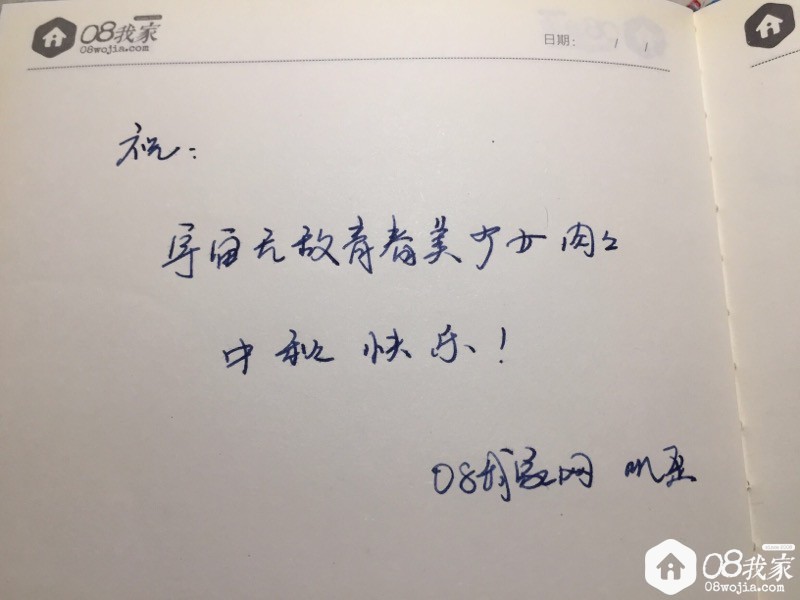 08我家
08wojia.com
日期： / /
祝：
宇宙无敌青春美少女肉肉
中秋 快乐！
08我家网
08我家
08wojia.com